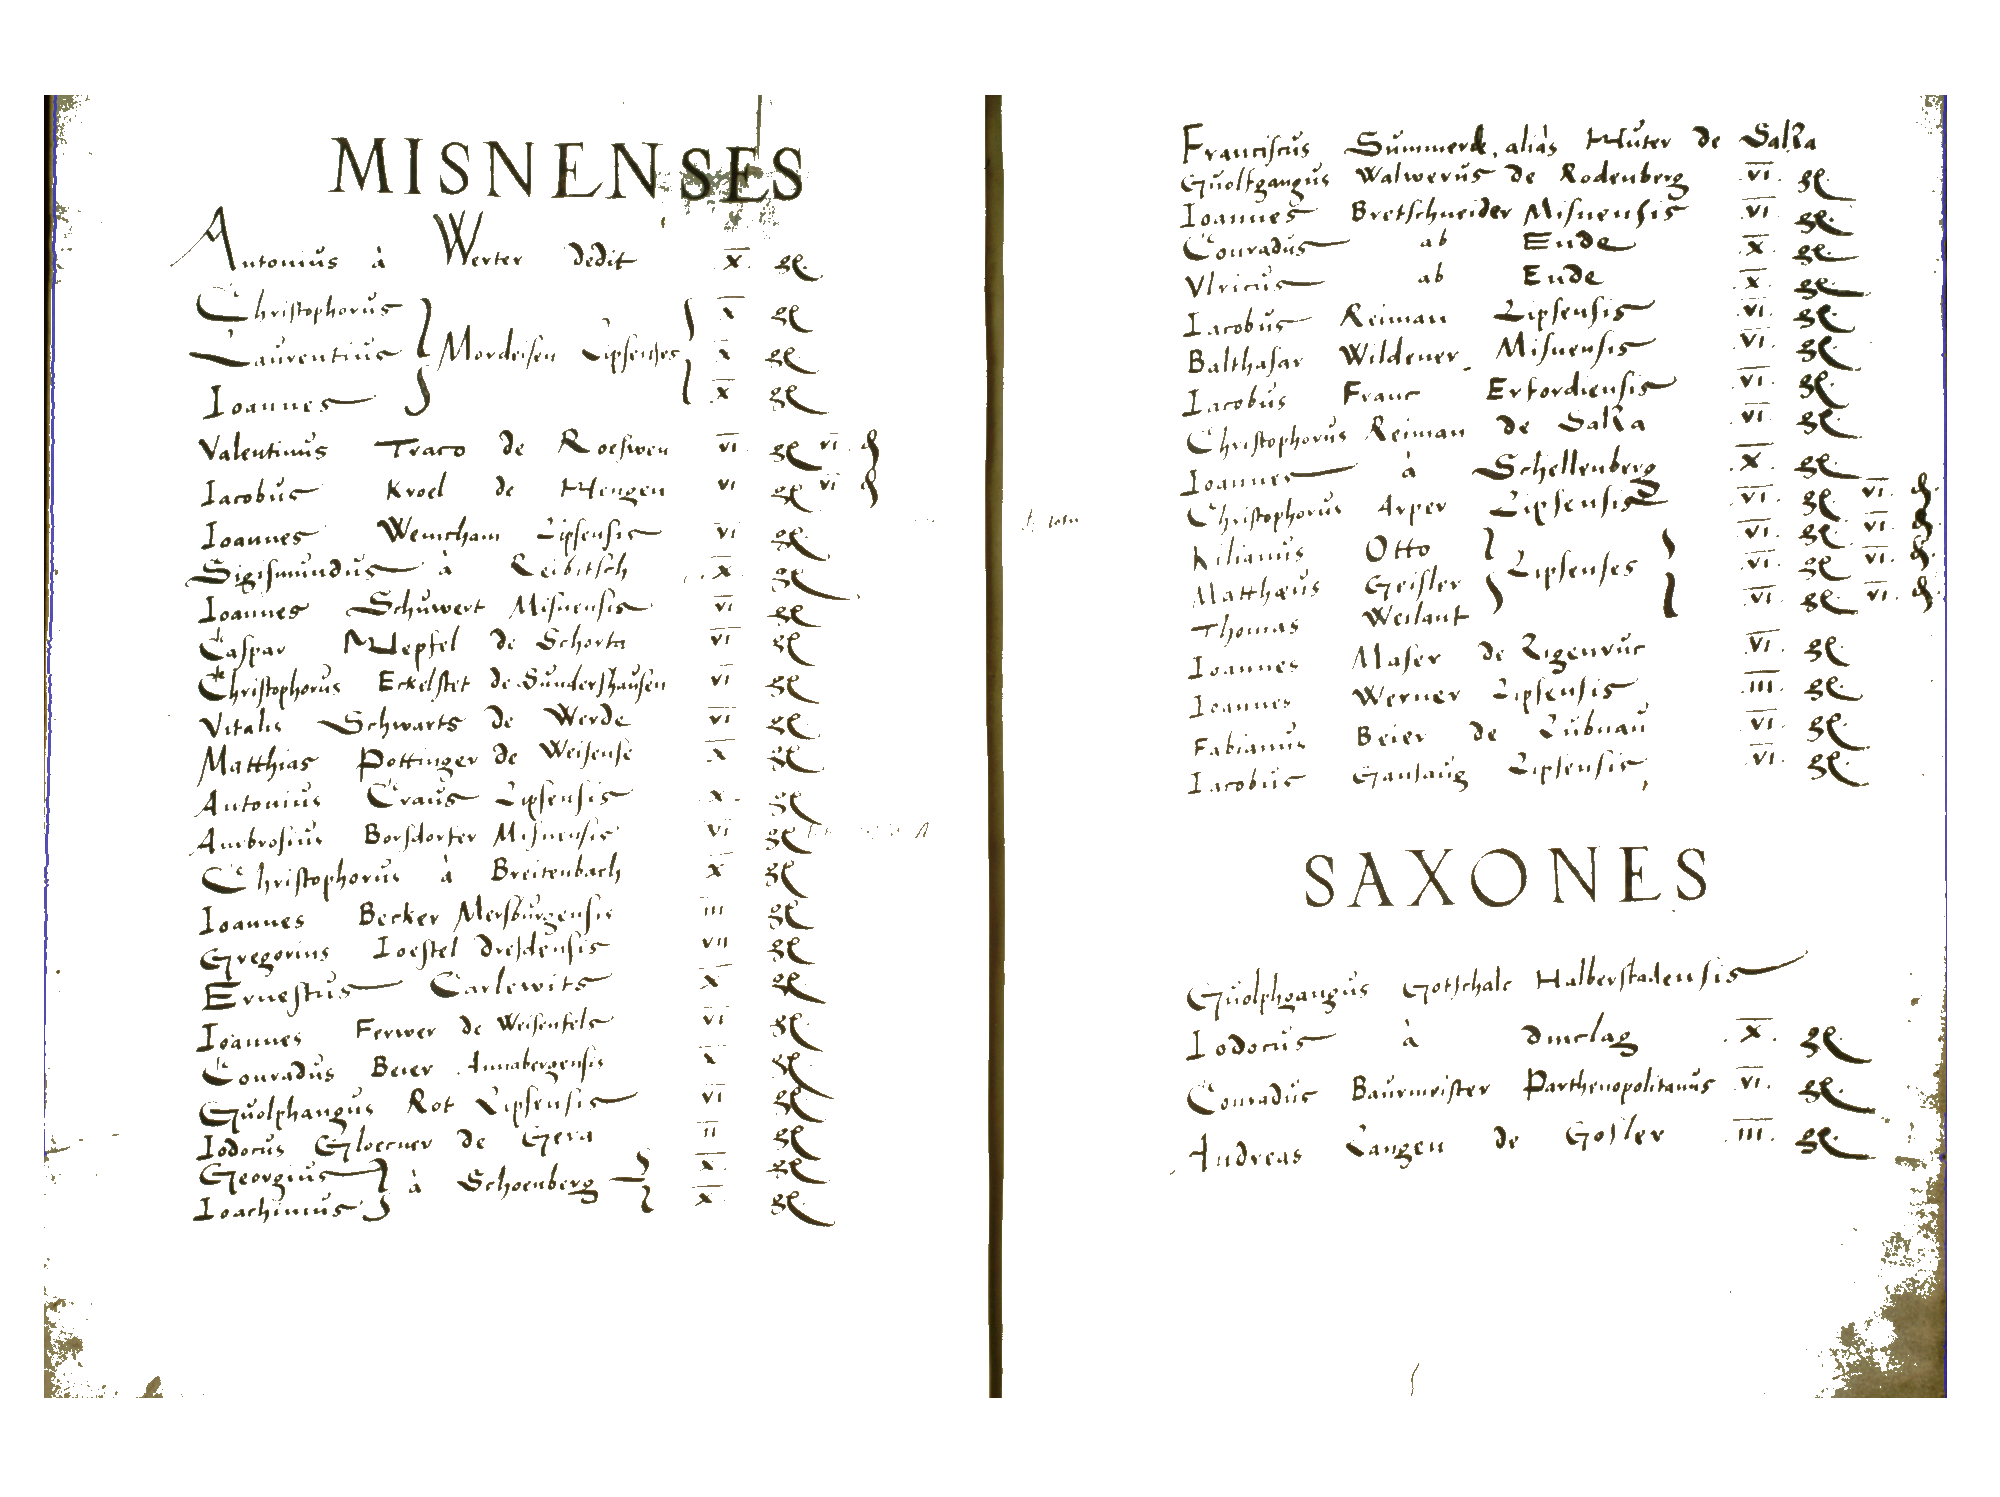 MISNENSES
Antonius à Werter dedit x gl.
Christophorus x gl
Laurentius } Mordeisen Lipsenses x gl
Ioannes x gl
Valentinus Traco de Roeswen vi gl vi d
Iacobus Kroel de Mengen vi gl vi d
Ioannes Weincham Lipsensis vi gl
Sigismundus à Leibitsch x gl
Ioannes Schuwert Misnensis vi gl
Caspar Nepfel de Schorta vi gl
Christophorus Eckelstet de Sundershausen vi gl
Vitalis Schwarts de Werde vi gl
Matthias Pottinger de Weisense x gl
Antonius Craus Lipsensis x gl
Ambrosius Borsdorfer Misnensis vi gl
Christophorus à Breitenbach x gl
Ioannes Becker Mersburgensis iii gl
Gregorius Ioestel Dresdensis vii gl
Ernestus Carlewits x gl
Ioannes Ferwer de Weisenfels vi gl
Conradus Beier Annabergensis x gl
Guolphangus Rot Lipsensis vi gl
Iodocus Gloecner de Gera ii gl
Georgius } à Schoenberg x gl
Ioachimus x gl
Franciscus Summerde, aliàs Huter de Salka
Guolfgangus Walwerus de Rodenberg vi gl
Ioannes Bretschneider Misnensis vi gl.
Conradus ab Ende x gl.
Vlricus ab Ende x gl.
Iacobus Reiman Lipsensis vi gl
Balthasar Wildener Misnensis vi gl.
Iacobus Franc Erfordiensis vi gl.
Christophorus Reiman de Salka vi gl.
Ioannes à Schellenberg x gl.
Christophorus Arper Lipsensis vi gl. vi d.
Kilianus Otto vi gl vi d.
Matthæus Geisler } Lipsenses vi gl vi d.
Thomas Weilant vi gl vi d.
Ioannes Maser de Zigenruc vi gl.
Ioannes Werner Lipsensis iii gl.
Fabianus Beier de Lubnau vi gl.
Iacobus Gansaug Lipsensis vi gl.
SAXONES
Guolphgangus Gotschalc Halberstadensis
Iodocus à Dinclag x gl.
Conradus Baurmeister Parthenopolitanus vi gl.
Andreas Langen de Gosler iii gl.